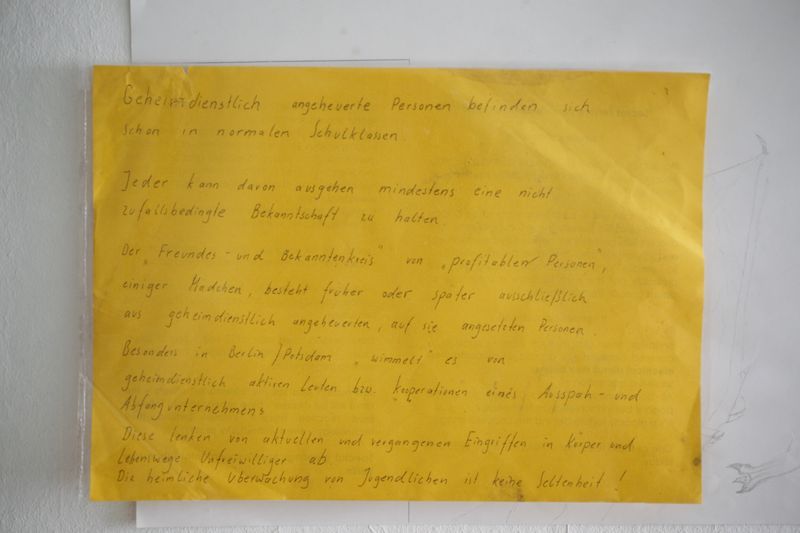 Geheimdienstlich angeheuerte Personen befinden sich
schon in normalen Schulklassen.
Jeder kann davon ausgehen mindestens eine nicht
zufallsbedingte Bekanntschaft zu halten.
Der „Freundes- und Bekanntenkreis" von „profitablen Personen",
einiger Mädchen, besteht früher oder später ausschließlich
aus geheimdienstlich angeheuerten, auf sie angesetzten Personen.
Besonders in Berlin / Potsdam „wimmelt" es von
geheimdienstlich aktiven Leuten bzw. Kooperationen eines Ausspäh- und
Abfangunternehmens
Diese lenken von aktuellen und vergangenen Eingriffen in Körper und
Lebenswege Unfreiwilliger ab.
Die heimliche Überwachung von Jugendlichen ist keine Seltenheit!